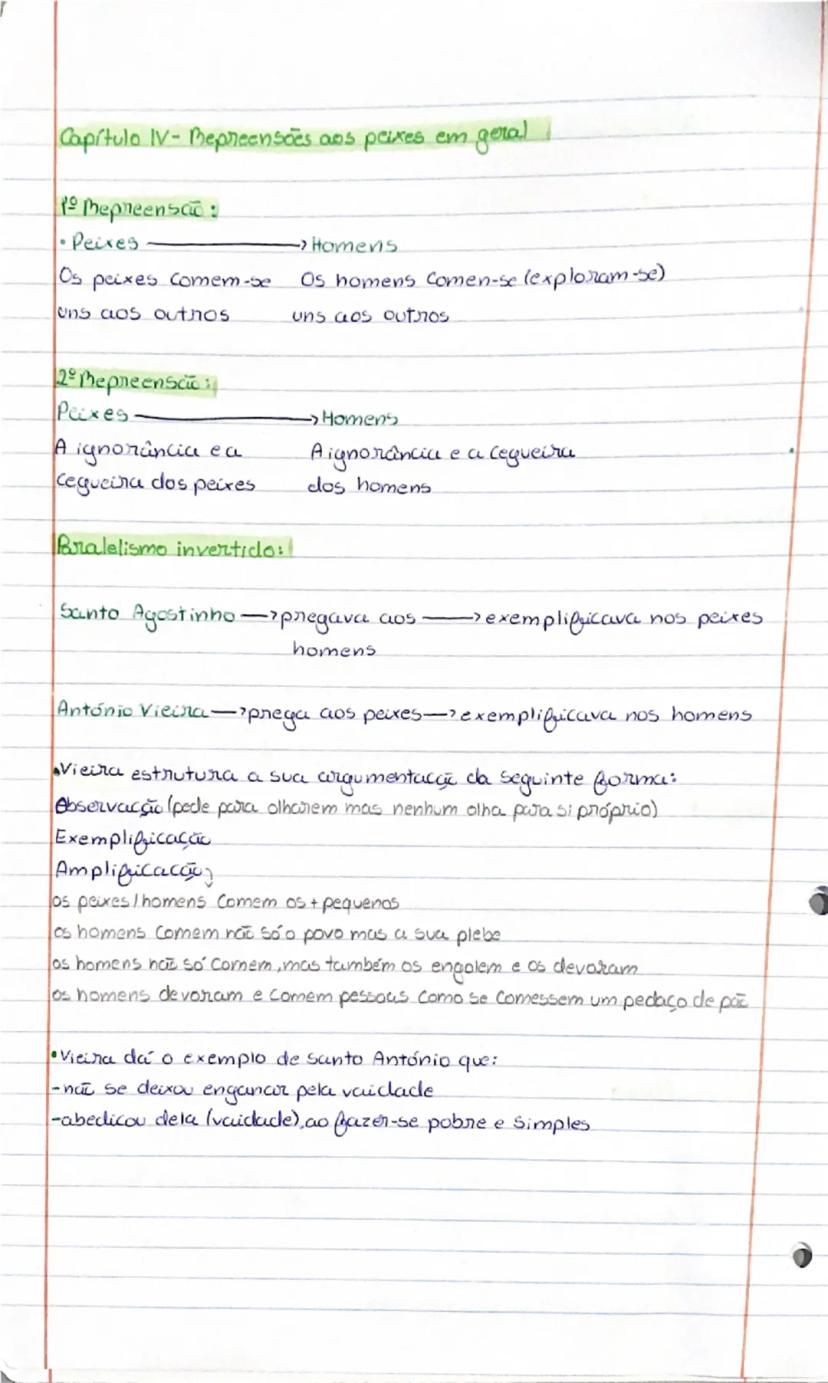 Capítulo IV - Repreensões aos peixes em geral
1º Repreensão:
• Peixes → Homens
Os peixes comem-se Os homens comen-se (exploram-se)
uns aos outros uns aos outros
2º Repreensão:
Peixes → Homens
A ignorância e a A ignorância e a cegueira
cegueira dos peixes dos homens
Paralelismo invertido:
Santo Agostinho → pregava aos → exemplificava nos peixes
homens
António Vieira → prega aos peixes → exemplificava nos homens
• Vieira estrutura a sua argumentação da seguinte forma:
Observação (pede para olharem mas nenhum olha para si próprio)
Exemplificação
Amplificação;
os peixes/homens comem os + pequenos
os homens comem não só o povo mas a sua plebe
os homens não só comem, mas também os engolem e os devoram
os homens devoram e comem pessoas como se comessem um pedaço de pão
• Vieira dá o exemplo de Santo António que:
-não se deixou enganar pela vaidade
-abedicou dela (vaidade), ao fazer-se pobre e simples